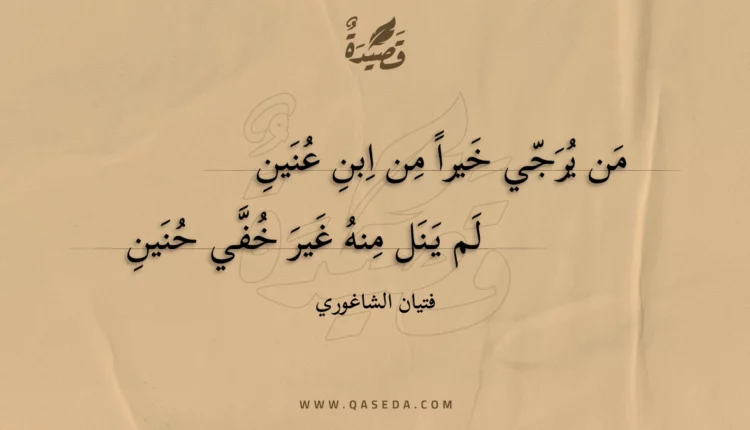 قَصِيدَةٌ
مَن يُرَجّي خَيراً مِن اِبنِ عُنَينِ
لَم يَنَل مِنهُ غَيرَ خُفَّي حُنَينِ
فتيان الشاغوري
WWW.QASEDA.COM